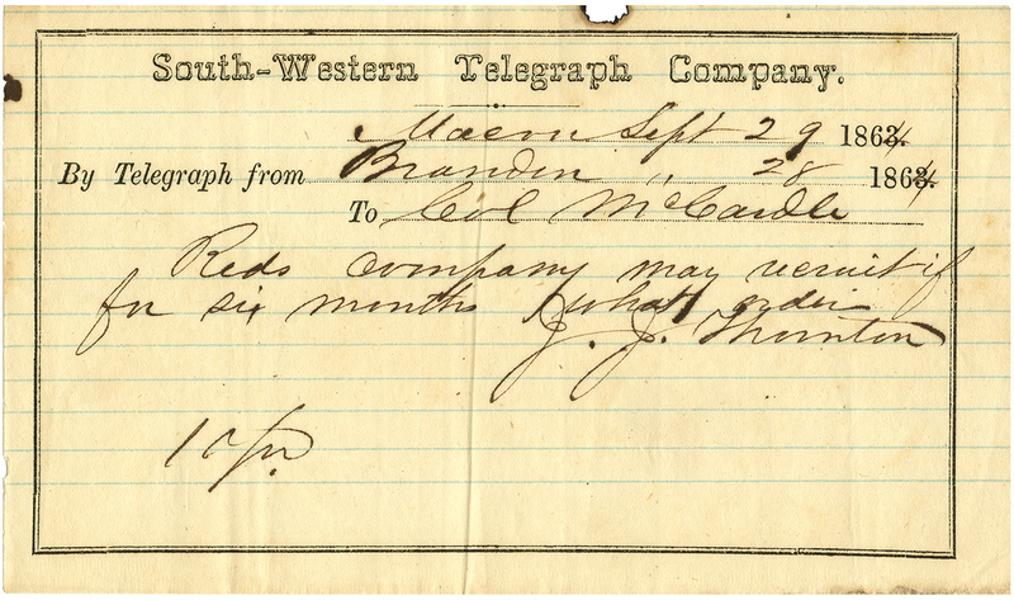 South-Western Telegraph Company.
Macon Sept 29 1864.
By Telegraph from Brandon " 28 1864.
To Col McCardle
Reds company may recruit if
for six months what order
J. J. Thornton
10/pr